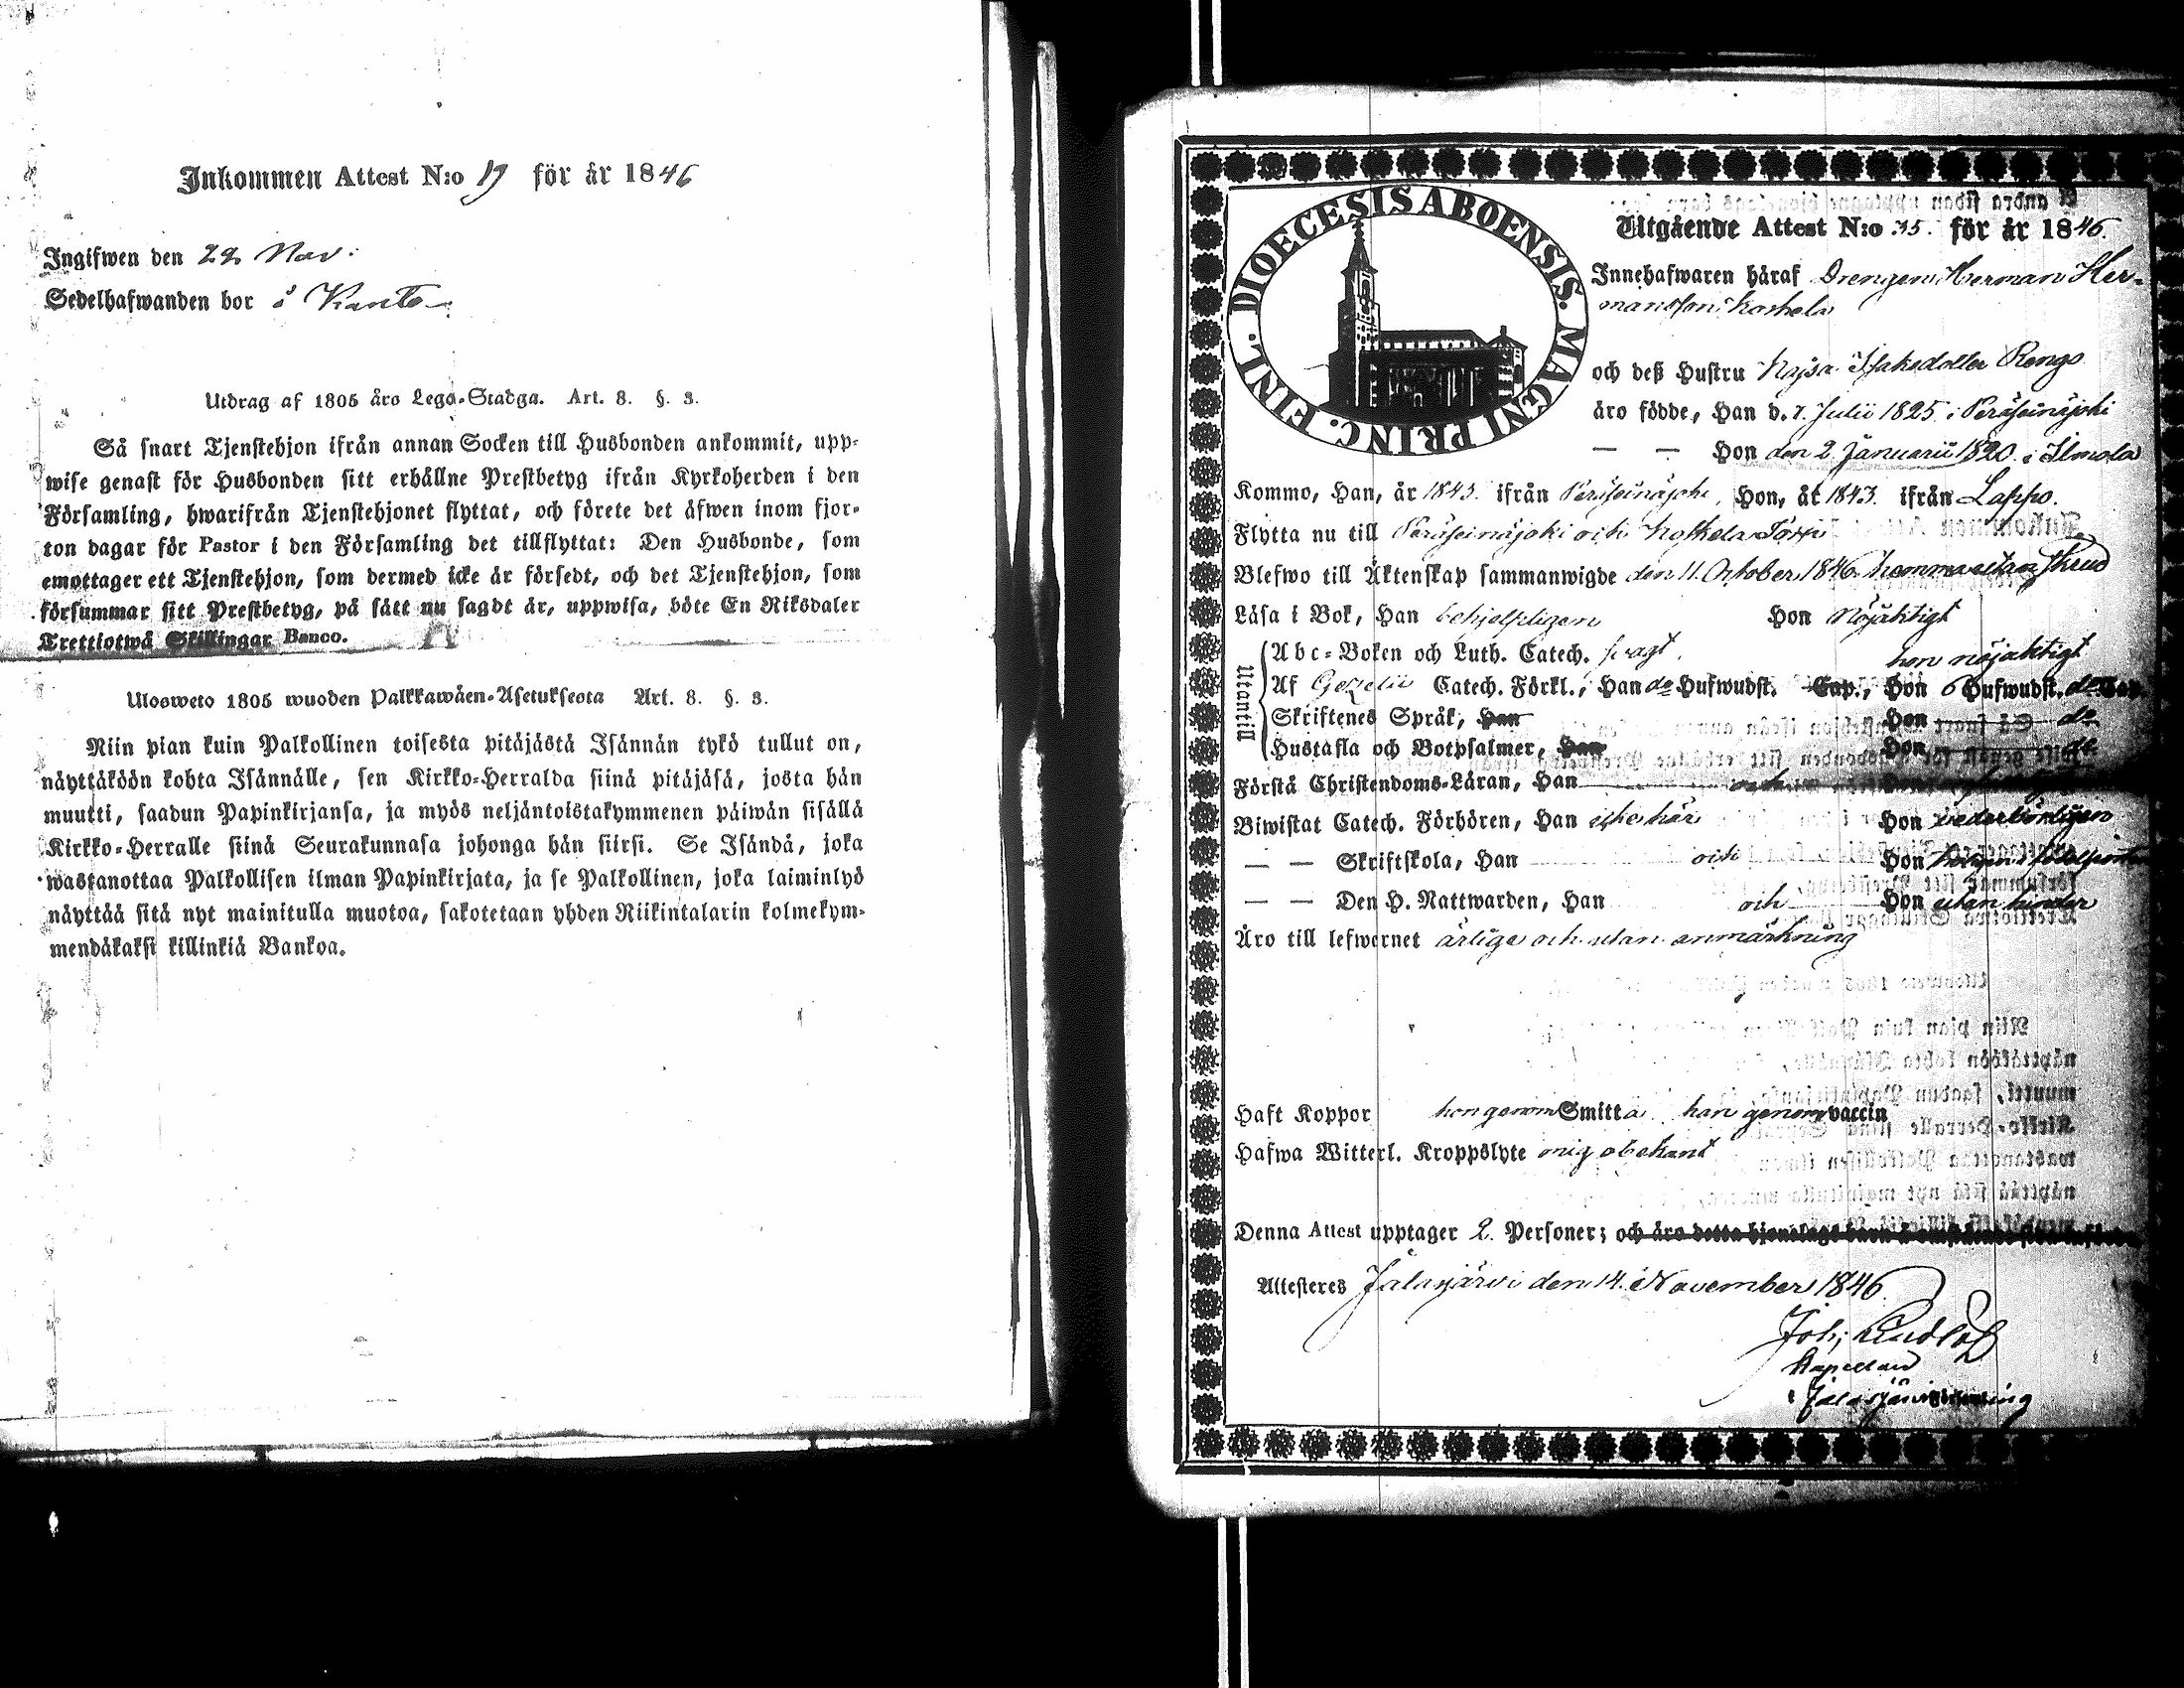 Inkommen Attest N:o 19 för år 1846
Ingifwen den 22 Nov:
Sedelhafwanden bor å Kanto
Utdrag af 1805 års Lego-Stadga. Art. 8. §. 3.
Så snart Tjenstehjon ifrån annan Socken till Husbonden ankommit, upp-
wise genast för Husbonden sitt erhållne Prestbetyg ifrån Kyrkoherden i den
Församling, hwarifrån Tjenstehjonet flyttat, och förete det äfwen inom fjor-
ton dagar för Pastor i den Församling det tillflyttat: Den Husbonde, som
emottager ett Tjenstehjon, som dermed icke är försedt, och det Tjenstehjon, som
försummar sitt Prestbetyg, på sätt nu sagdt är, uppwisa, böte En Riksdaler
Trettiotwå Skillingar Banco.
Ulosweto 1805 wuoden Palkkawäen-Asetuksesta Art. 8. §. 3.
Niin pian kuin Palkollinen toisesta pitäjästä Isännän tykö tullut on,
näyttäköön kohta Isännälle, sen Kirkko-Herralda siinä pitäjäsä, josta hän
muutti, saadun Papinkirjansa, ja myös neljäntoistakymmenen päiwän sisällä
Kirkko-Herralle siinä Seurakunnasa johonga hän siirsi. Se Isändä, joka
wastanottaa Palkollisen ilman Papinkirjata, ja se Palkollinen, joka laiminlyö
näyttää sitä nyt mainitulla muotoa, sakotetaan yhden Riikintalarin kolmekym-
mendäkaksi killinkiä Bankoa.
DIOECESIS ABOENSIS. MAGNI PRINC. FINL.
Utgående Attest N:o 35. för år 1846.
Innehafwaren häraf Drengen Herman Her-
mansson Koskela
och deß Hustru Kajsa Isaksdotter Rengo
äro födde, Han d. 7. Julii 1825 i Peräseinäjoki
— — Hon den 2 Januarii 1820. i Ilmola
Kommo, Han, år 1843. ifrån Peräseinäjoki, Hon, åt 1843. ifrån Lappo.
Flytta nu till Peräseinäjoki och Koskela Torp
Blefwo till Äktenskap sammanwigde den 11. October 1846. hemma utan skrud
Läsa i Bok, Han behjelpligen Hon Nöjaktigt
Utantill
Abc-Boken och Luth. Catech. svagt, hon nöjaktigt
Af Gezelii Catech. Förkl., Han do Hufwudst. Cap., Hon 6 Hufwudst. do Cap.
Skriftenes Språk, Han Hon do
Hustafla och Botpsalmer, Han Hon do
Första Christendoms-Läran, Han och
Biwistat Catech. Förhören, Han icke här Hon wederbörligen
— — Skriftskola, Han och Hon
— — Den H. Nattwarden, Han och Hon utan hinder
Äro till lefwernet ärliga och utan anmärkning
Haft Koppor hon genom Smitta han genom vaccin
Hafwa Witterl. Kroppslyte mig obekant
Denna Attest upptager 2. Personer; och äro detta hjonelags barn
Attesteres Jalasjärvi den 14. November 1846
Joh:
Kapellan
i Jalasjärvi